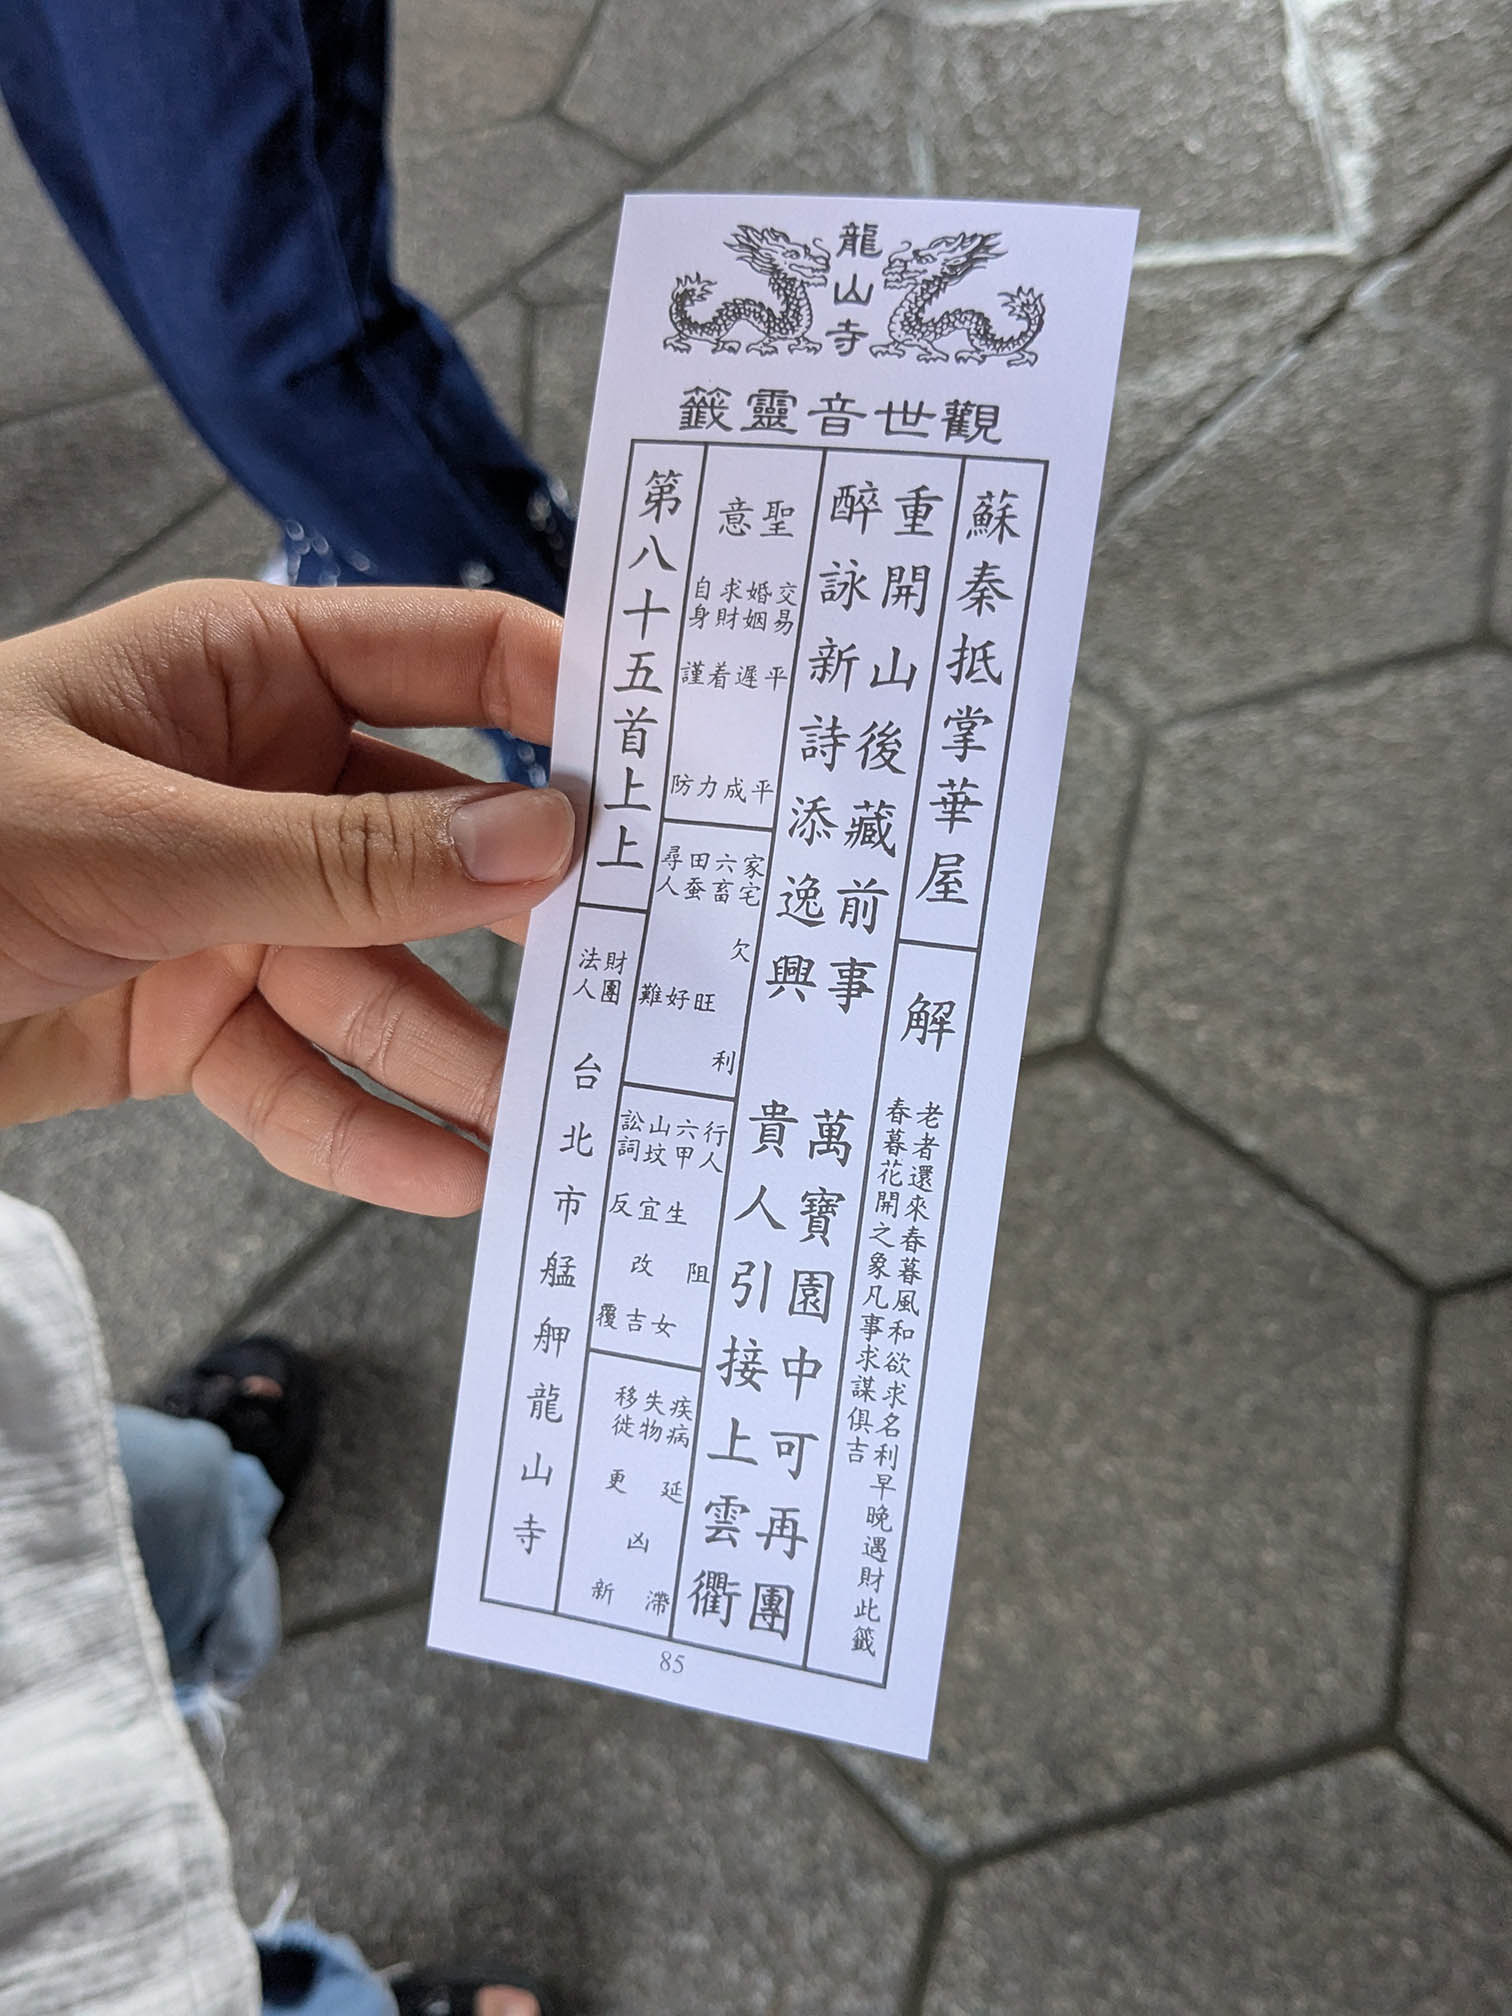 龍山寺
觀世音靈籤
蘇秦抵掌華屋
解
老者還來春暮風和欲求名利早晚遇財此籤
春暮花開之象凡事求謀俱吉
重開山後藏前事 萬寶園中可再團
醉詠新詩添逸興 貴人引接上雲衢
聖意
交易 平平
婚姻 遲成
求財 着力
自身 謹防
家宅 欠利
六畜 旺
田蚕 好
尋人 難
行人 阻
六甲 生女
山坟 宜改吉
訟詞 反覆
疾病 延滯
失物 凶
移徙 更新
第八十五首上上
財團法人 台北市艋舺龍山寺
85